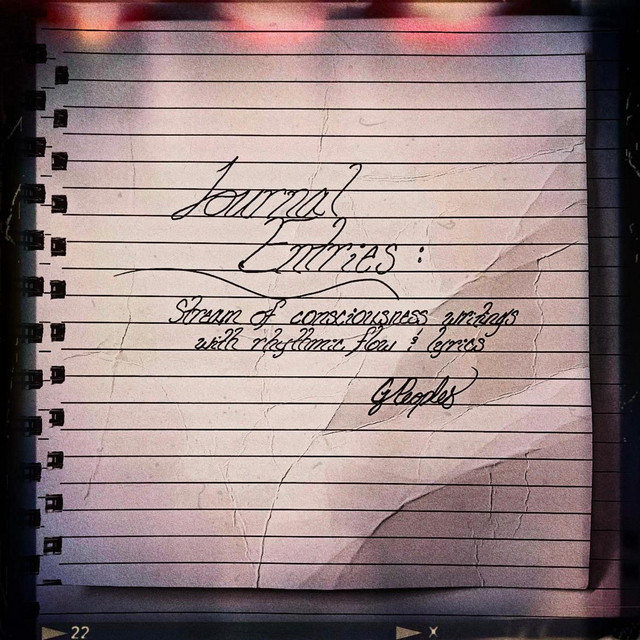 Journal
Entries :
Stream of consciousness writings
with rhythmic flow & lyrics
GPeoples
22
x